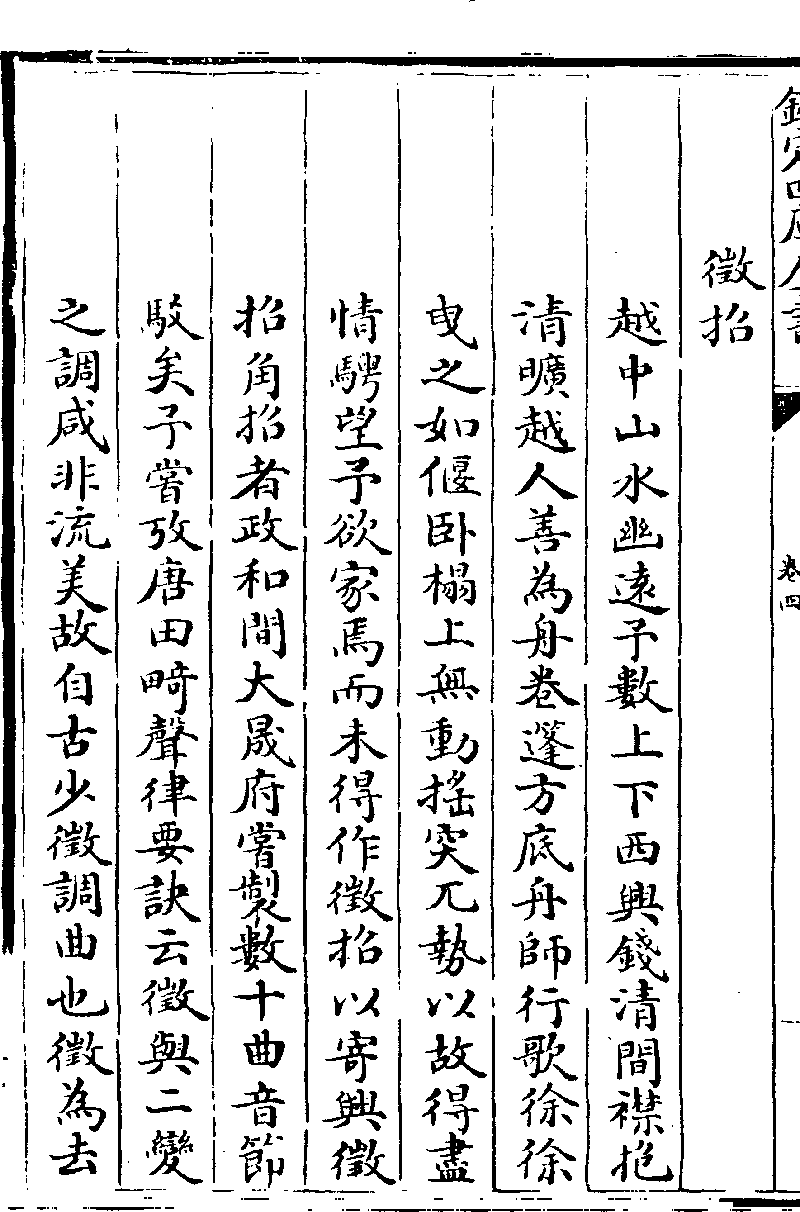 欽定四庫全書
卷四
徵招
越中山水幽遠予數上下西興錢清間襟抱
清曠越人善為舟卷蓬方底舟師行歌徐徐
曳之如偃卧榻上無動搖突兀勢以故得盡
情騁望予欲家焉而未得作徵招以寄興徵
招角招者政和間大晟府嘗製數十曲音節
駁矣予嘗攷唐田畸聲律要訣云徵與二變
之調咸非流美故自古少徵調曲也徵為去